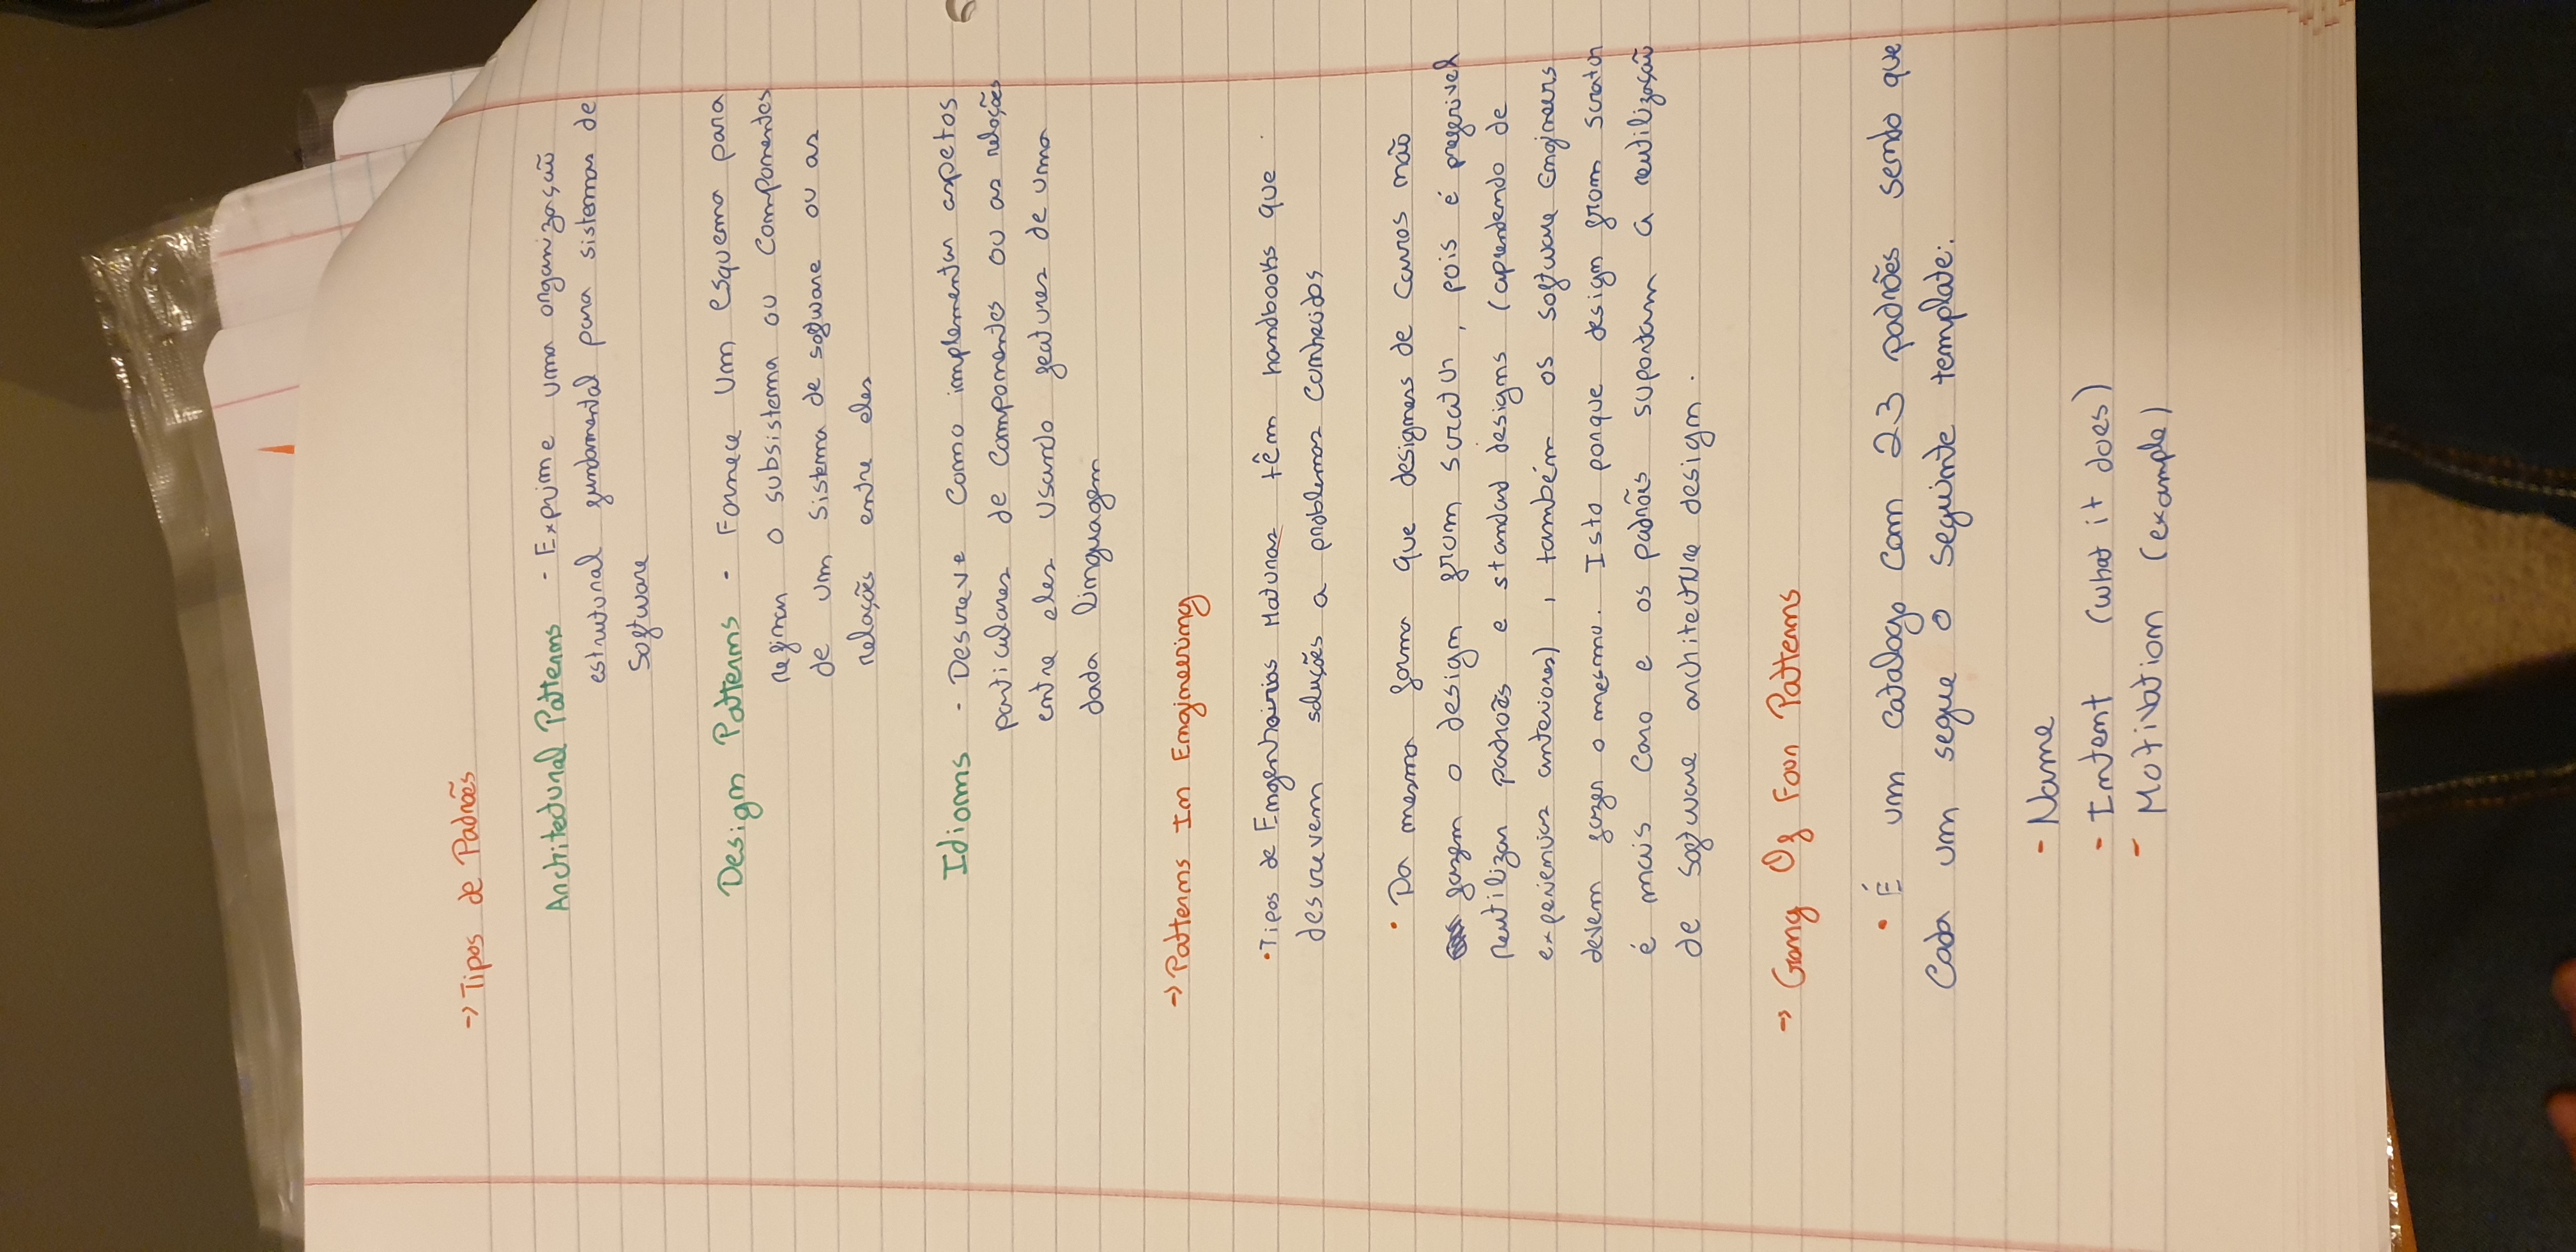 → Tipos de Padrões
Architectural Patterns - Exprime uma organização
estrutural fundamental para sistemas de
Software
Design Patterns - Fornece Um esquema para
refinar o subsistema ou componentes
de um sistema de software ou as
relações entre eles
Idioms - Descreve como implementar aspetos
particulares de componentes ou as relações
entre eles usando features de uma
dada linguagem
→ Patterns In Engineering
• Tipos de Engenhairias Maturas têm handbooks que
descrevem soluções a problemas conhecidos
• Da mesma forma que designers de carros não
fazem o design from scratch, pois é preferivel
reutilizar padroẽs e standard designs (aprendendo de
experiencias anteriores), também os software Engineers
devem fazer o mesmo. Isto porque design from scratch
é mais caro e os padrõis suportam a reutilização
de software architecture design.
→ Gang Of Four Patterns
• É um catalogo com 23 padrões sendo que
Cada um segue o seguinte template:
- Name
- Intent (what it does)
- Motivation (example)